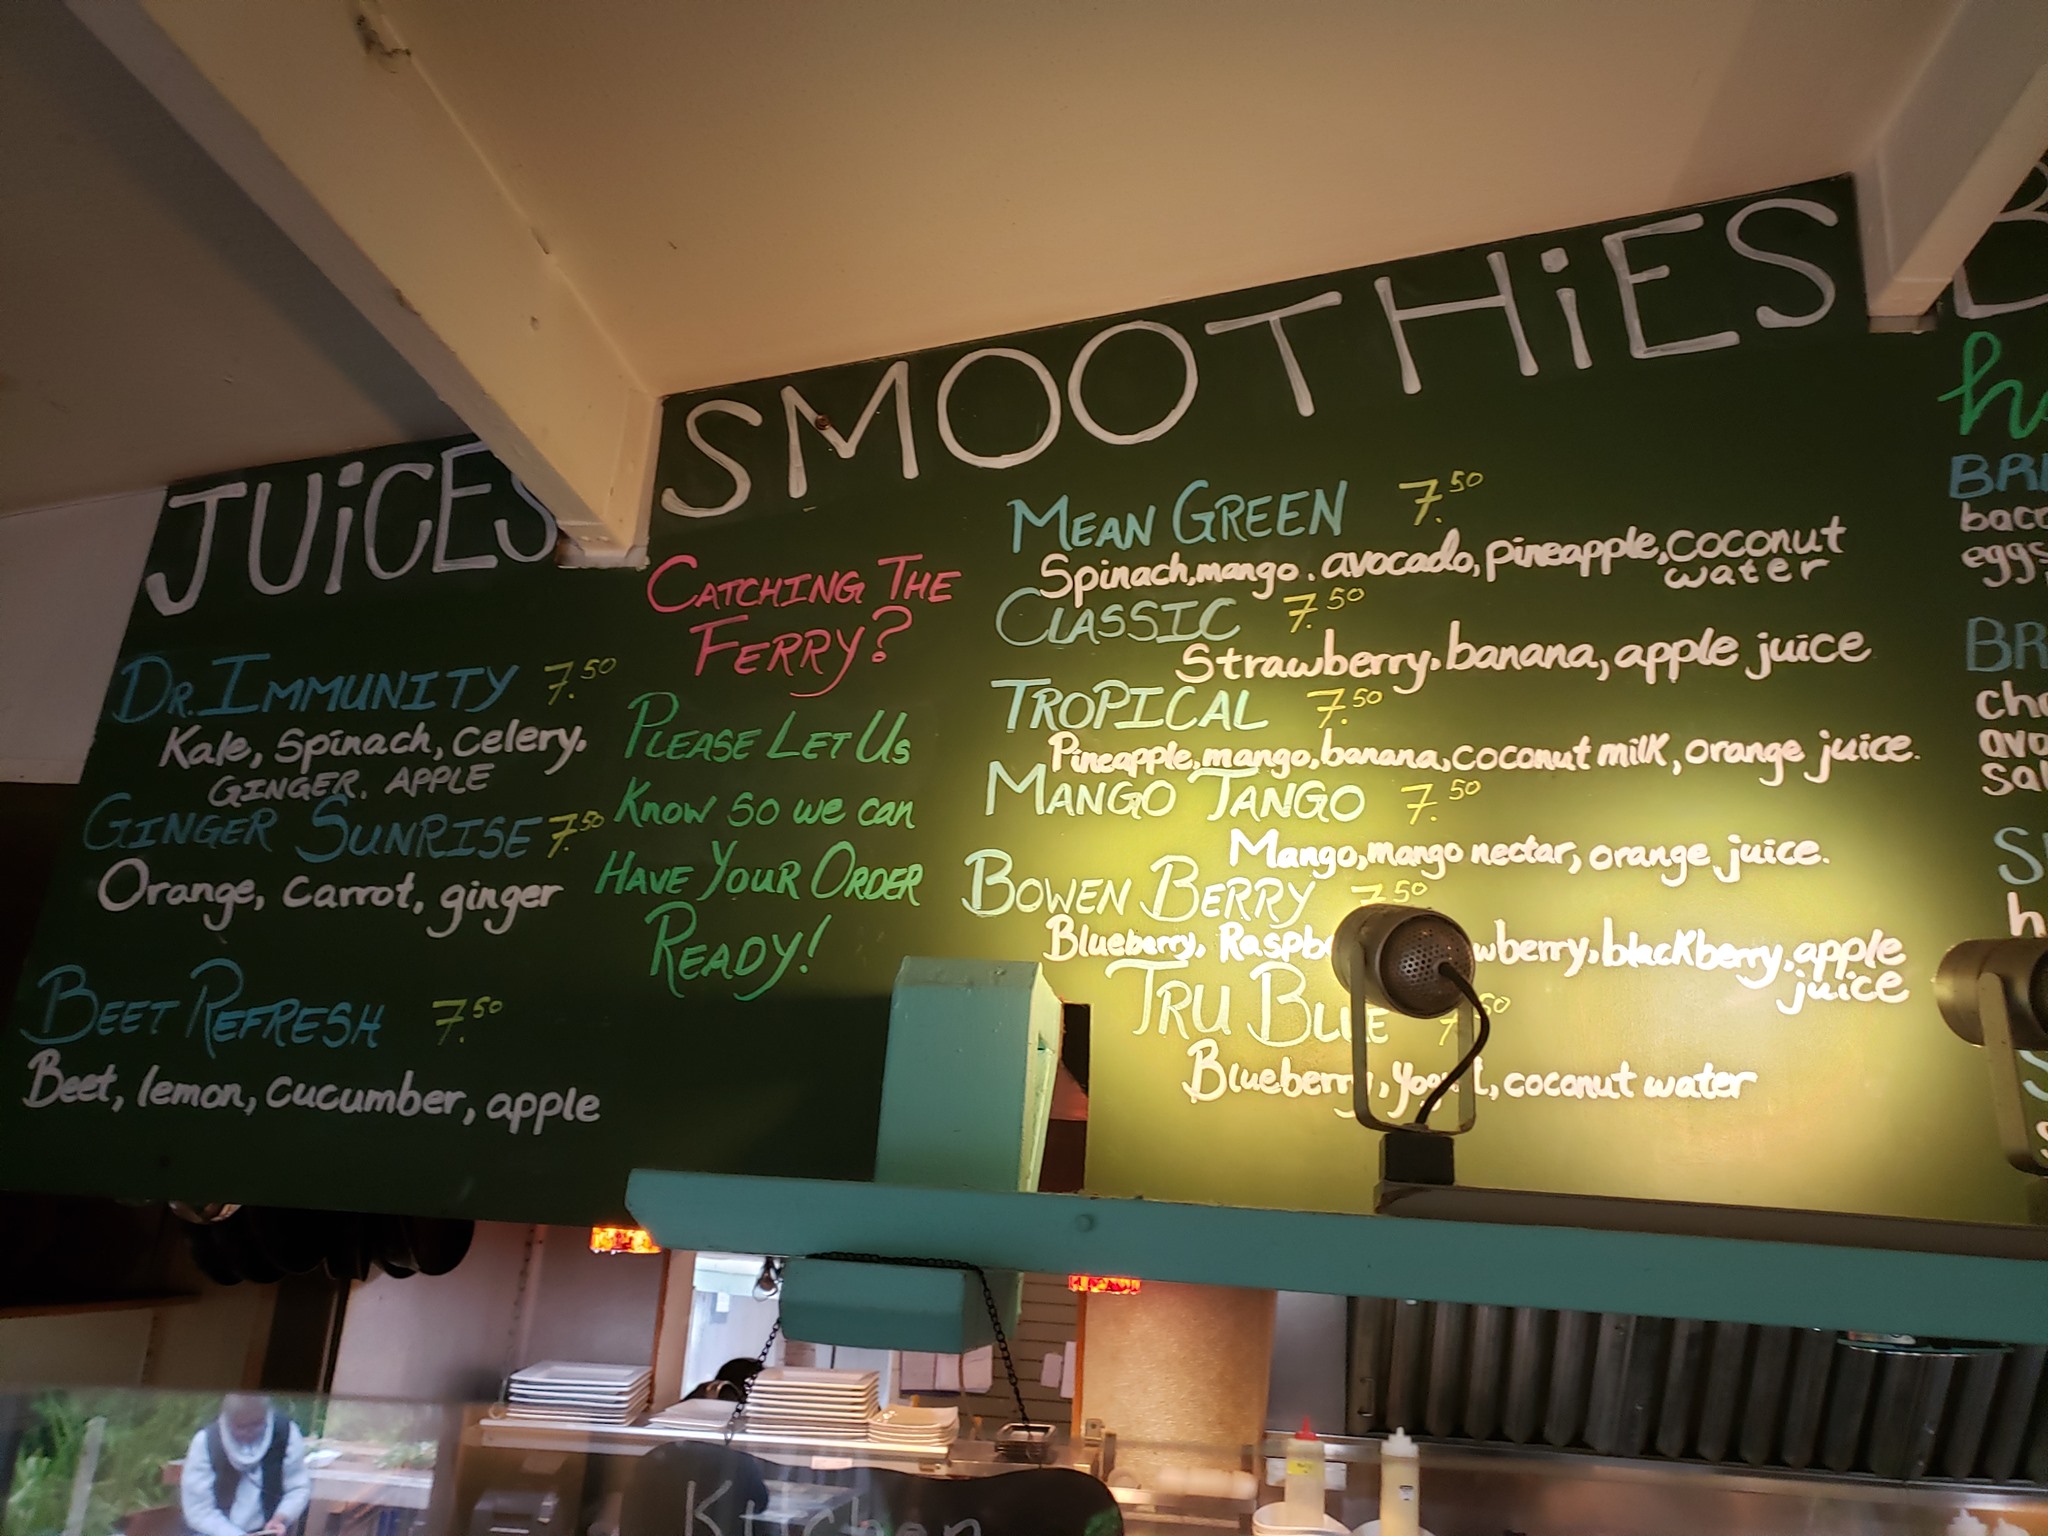 JUiCES
DR. IMMUNITY 7.50
Kale, Spinach, celery,
GINGER, APPLE
GINGER SUNRISE 7.50
Orange, carrot, ginger
BEET REFRESH 7.50
Beet, lemon, cucumber, apple
SMOOTHiES
CATCHING THE
FERRY?
PLEASE LET US
KNOW SO we can
HAVE YOUR ORDER
READY!
MEAN GREEN 7.50
Spinach, mango, avocado, pineapple, coconut
water
CLASSIC 7.50
Strawberry, banana, apple juice
TROPICAL 7.50
Pineapple, mango, banana, coconut milk, orange juice.
MANGO TANGO 7.50
Mango, mango nectar, orange juice.
BOWEN BERRY 7.50
Blueberry, Raspb wberry, blackberry, apple
juice
TRU BLUE 7.50
Blueberry, yogurt, coconut water
Kitchen